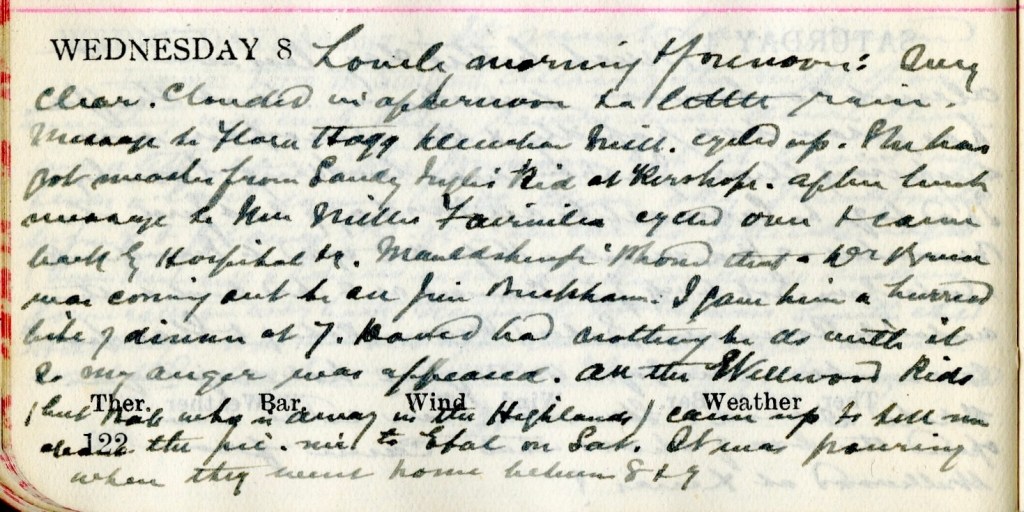 WEDNESDAY 8 Lovely morning & forenoon: Very
clear. Clouded in afternoon & a little rain.
Message to Flora Hogg Mill. cycled up. She has
got measles from Sandy Inglis' Kid at Kershope. After lunch
message to Mrs Millar Fairnilee cycled over & came
back by Hospital Rd. phoned that a Dr
was coming out to see Jim I gave him a hurried
bite of dinner at 7. David had nothing to do with it
so my anger was appeased. All the Wellwood Kids
Ther. Bar. Wind Weather
(but Rob who is away in the Highlands) came up to tell me
122
about the pic. nic to on Sat. It was pouring
when they went home between 8 & 9